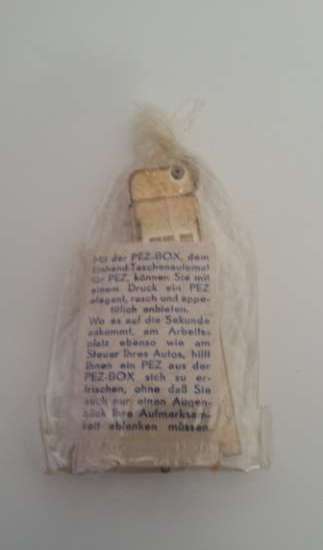 Mit der PEZ-BOX, dem
Einhand-Taschenautomat
für PEZ, können Sie mit
einem Druck ein PEZ
elegant, rasch und appe-
titlich anbieten.
Wo es auf die Sekunde
ankommt, am Arbeits-
platz ebenso wie am
Steuer Ihres Autos, hilft
Ihnen ein PEZ aus der
PEZ-BOX sich zu er-
frischen, ohne daß Sie
auch nur einen Augen-
blick Ihre Aufmerksam-
keit ablenken müssen